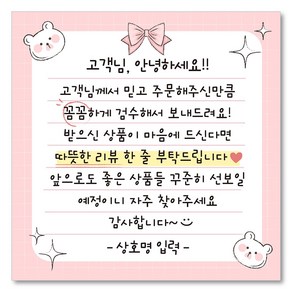 고객님, 안녕하세요!!
고객님께서 믿고 주문해주신만큼
꼼꼼하게 검수해서 보내드려요!
받으신 상품이 마음에 드신다면
따뜻한 리뷰 한 줄 부탁드립니다♥
앞으로도 좋은 상품들 꾸준히 선보일
예정이니 자주 찾아주세요
감사합니다~
- 상호명 입력 -